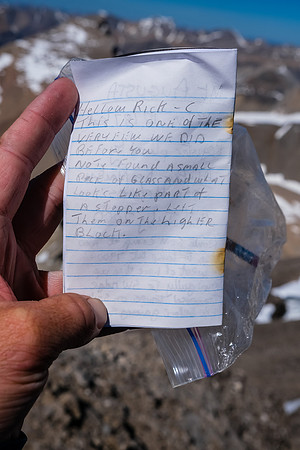 Hellow Rick - C
This is one of the
very few we did
before you
Note Found a small
of glass and what
looks like part of
a stepper. Left
them on the higher
block.